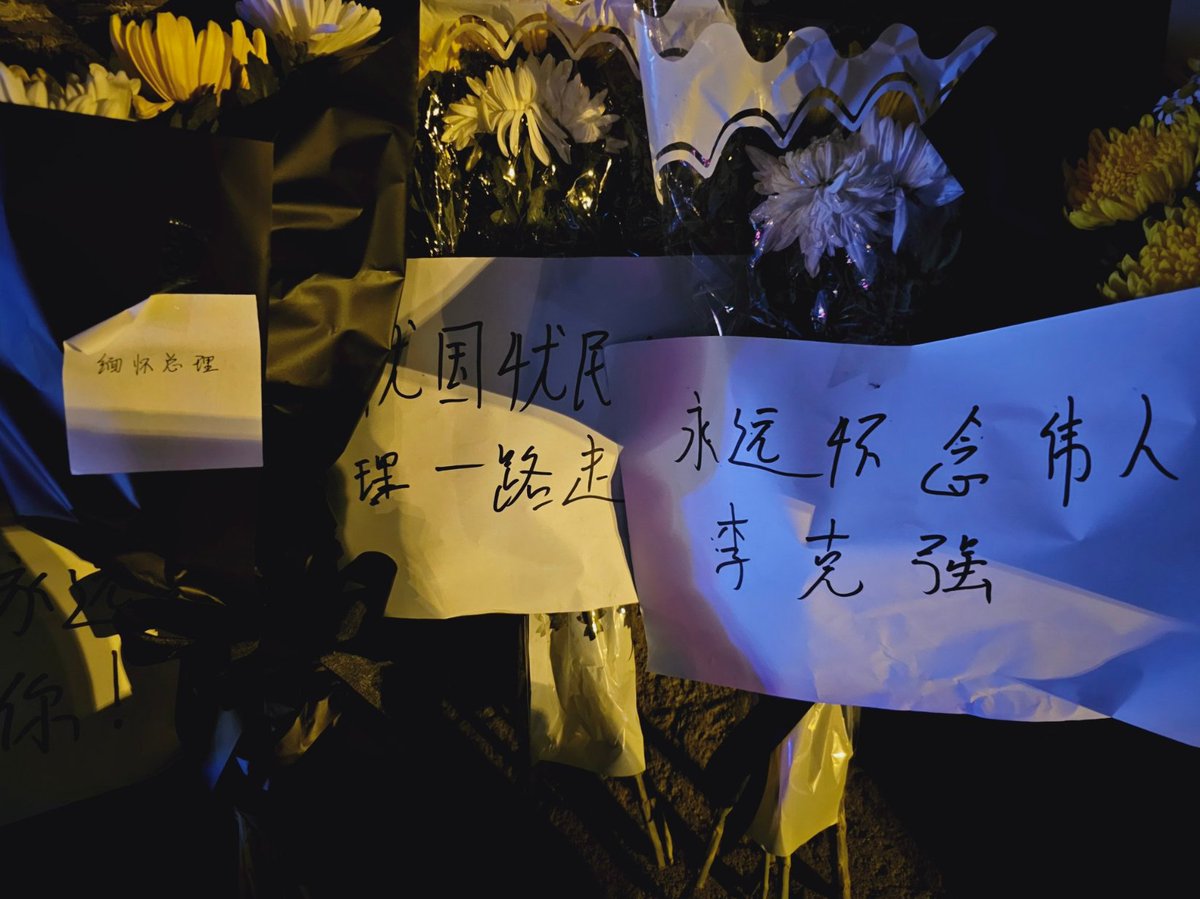 缅怀总理
忧国忧民
理一路走
永远怀念伟人
李克强
永远
你!